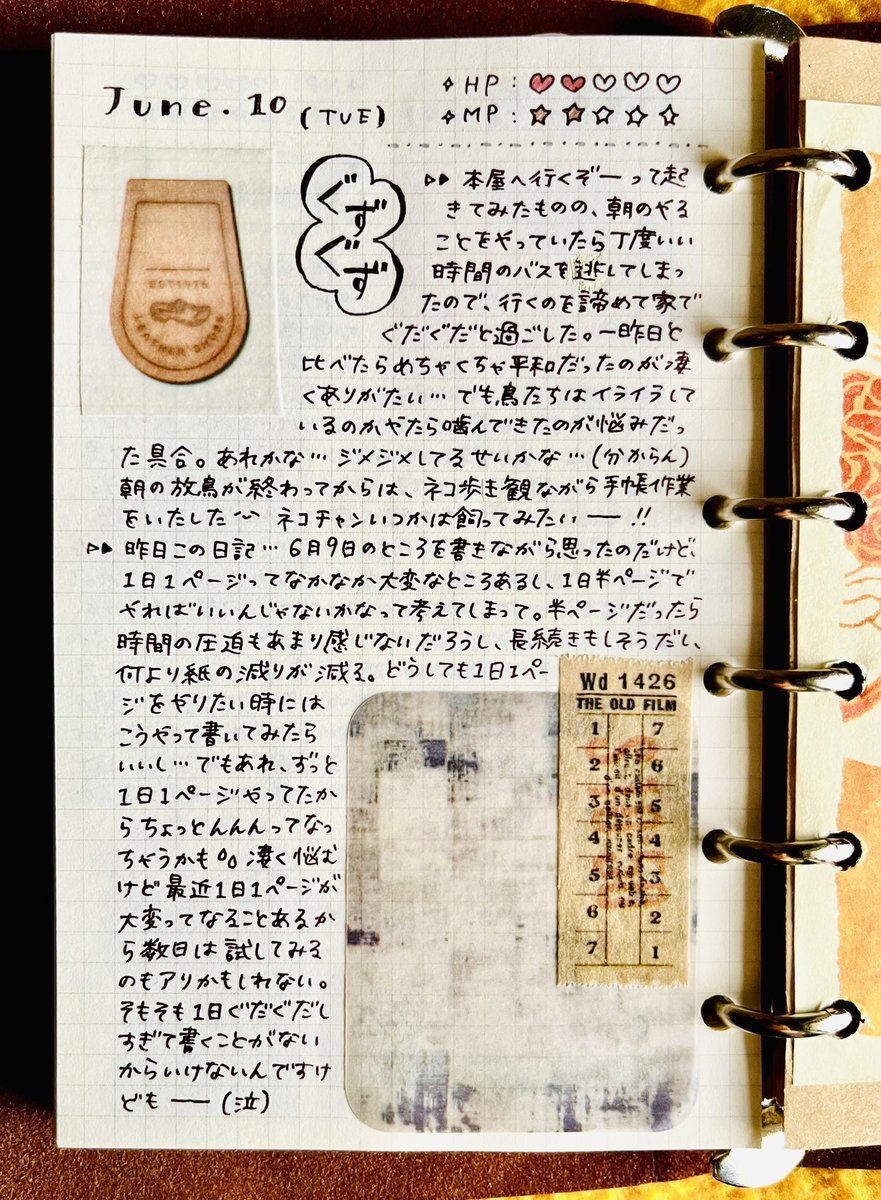 June.10 (TUE)
✧ HP : ♥♥♡♡♡
✧ MP : ★★☆☆☆
ぐずぐず
▷▷ 本屋へ行くぞーって起
きてみたものの、朝のやる
ことをやっていたら丁度いい
時間のバスを逃してしまっ
たので、行くのを諦めて家で
ぐだぐだと過ごした。一昨日と
比べたらめちゃくちゃ平和だったのが凄
くありがたい… でも鳥たちはイライラして
いるのかやたら噛んできたのが悩みだっ
た具合。あれかな… ジメジメしてるせいかな…(分からん)
朝の放鳥が終わってからは、ネコ歩きを観ながら手帳作業
をいたした ネコチャンいつかは飼ってみたいー!!
▷▷ 昨日この日記… 6月9日のところを書きながら思ったのだけど、
1日1ページってなかなか大変なところあるし、1日半ページで
やればいいんじゃないかなって考えてしまって。半ページだったら
時間の圧迫もあまり感じないだろうし、長続きもしそうだし、
何より紙の減りが減る。どうしても1日1ペー
ジをやりたい時には
こうやって書いてみたら
いいし… でもあれ、ずっと
1日1ページやってたか
らちょっとんんんってなっ
ちゃうかも。凄く悩む
けど最近1日1ページが
大変ってなることあるか
ら数日は試してみる
のもアリかもしれない。
そもそも1日ぐだぐだし
すぎて書くことがない
からいけないんですけ
ども ー (泣)
LEATHER
Wd 1426
THE OLD FILM
1 7
2 6
3 5
4 4
5 3
6 2
7 1